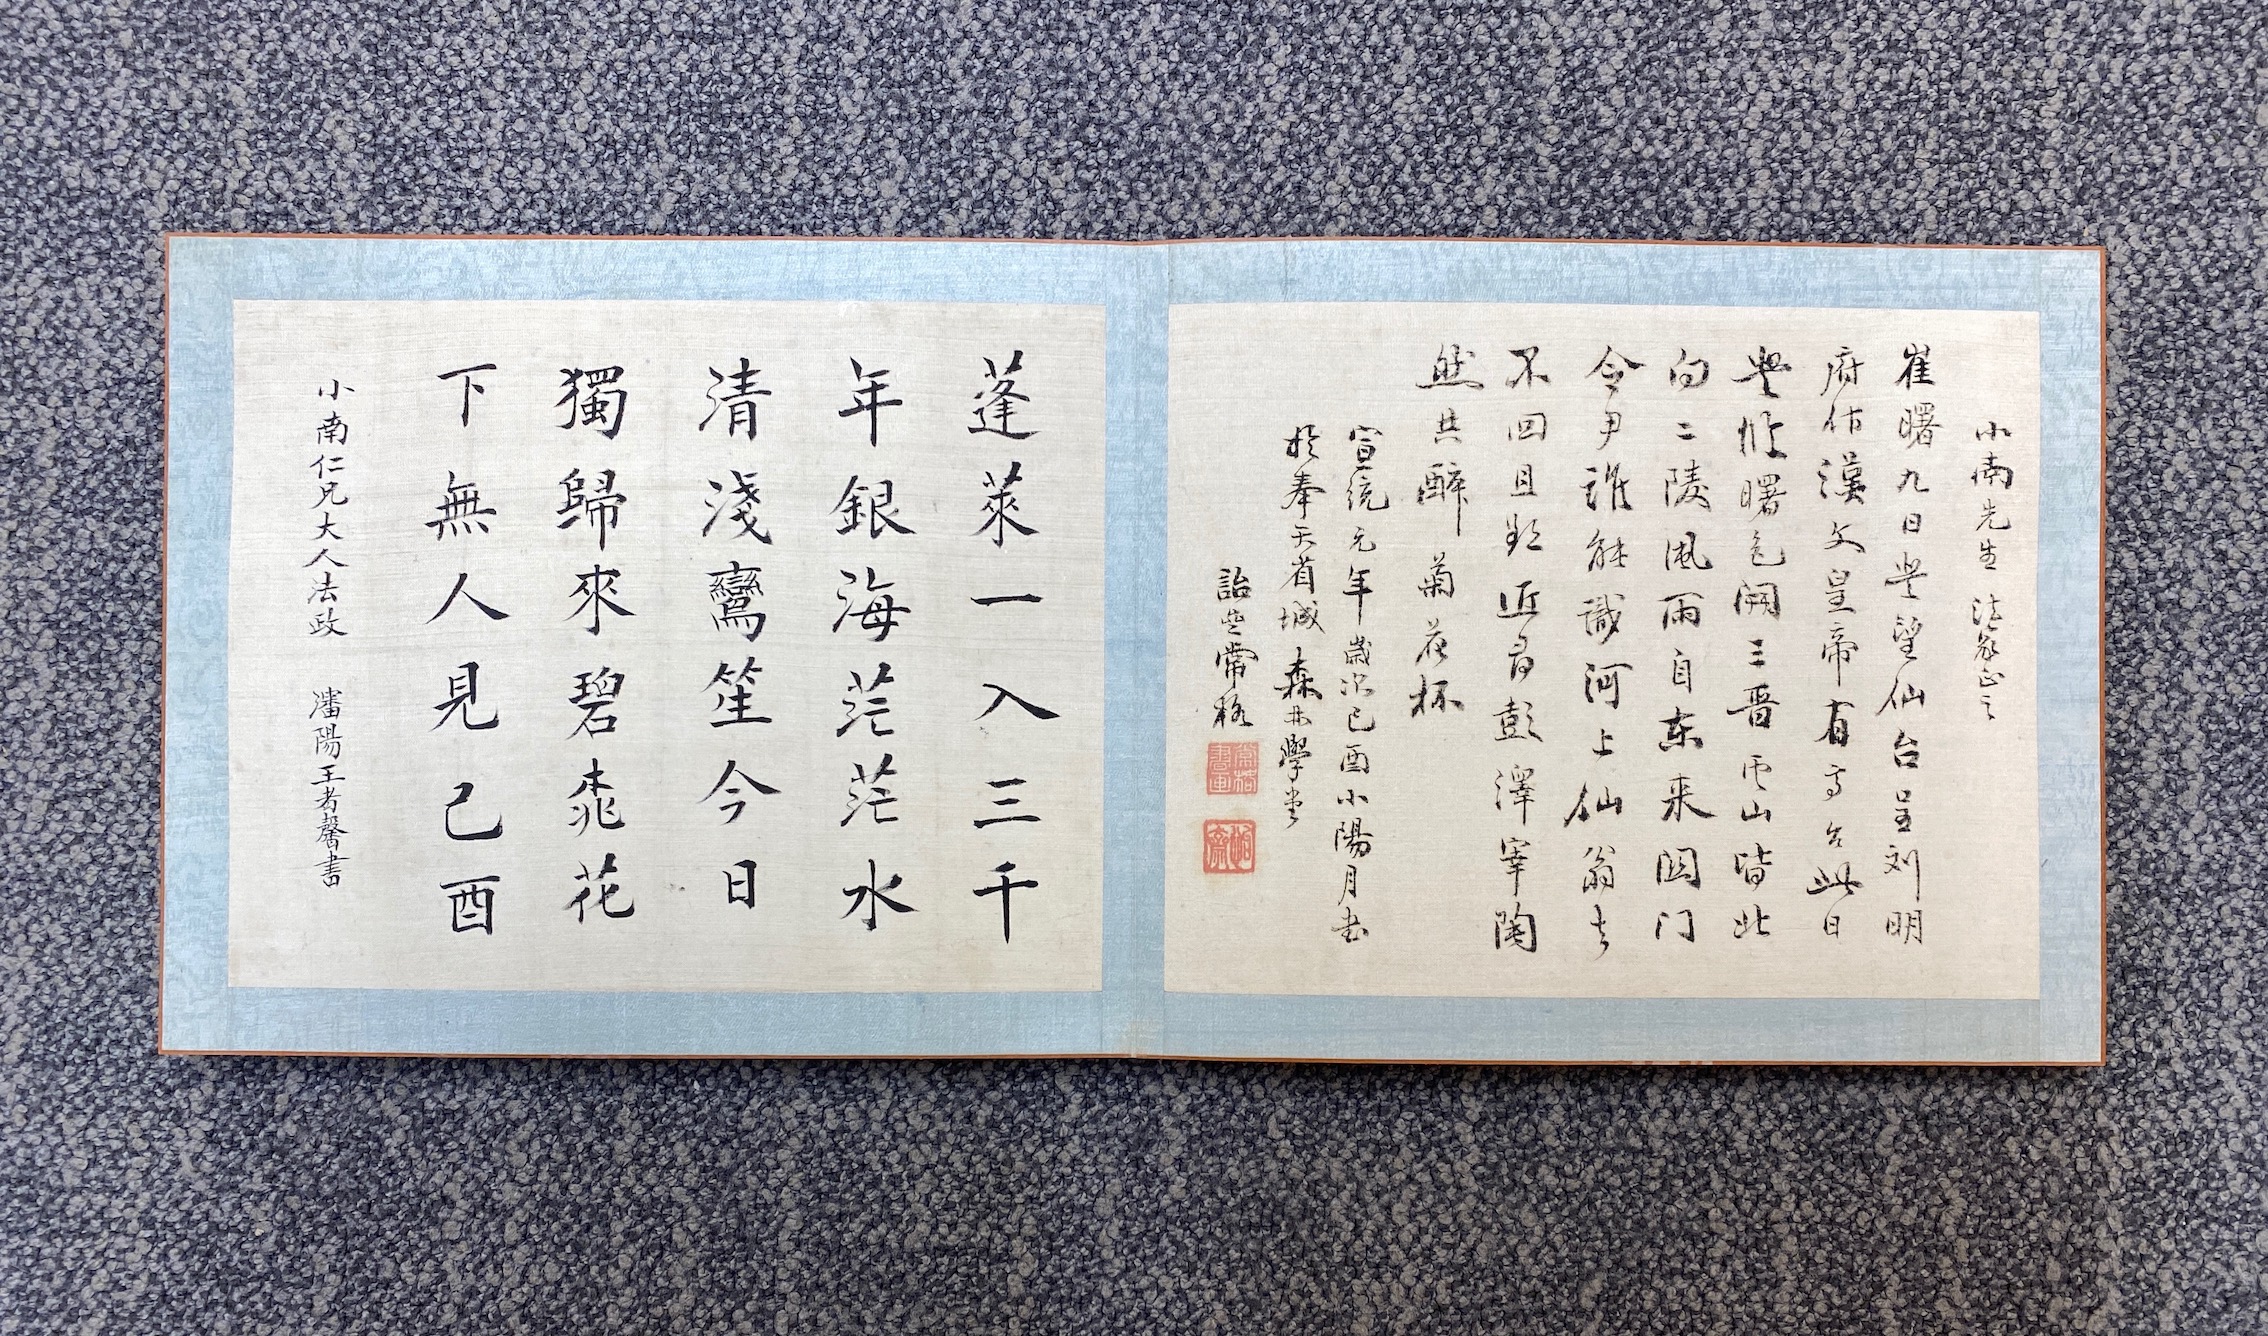 小南先生 法家正之
崔曙九日登望仙台呈刘明
府作漢文皇帝有高台此日
登临曙色開三晋云山皆北
向二陵風雨自东来関门
令尹誰能識河上仙翁去
不回且欲近尋彭澤宰陶
然共醉菊花杯
宣統元年歲次己酉小陽月书
於奉天省城森林學堂
詒堂常格
蓬萊一入三千
年銀海茫茫水
清淺鸞笙今日
獨歸來碧桃花
下無人見己酉
小南仁兄大人法政 瀋陽王者馨書